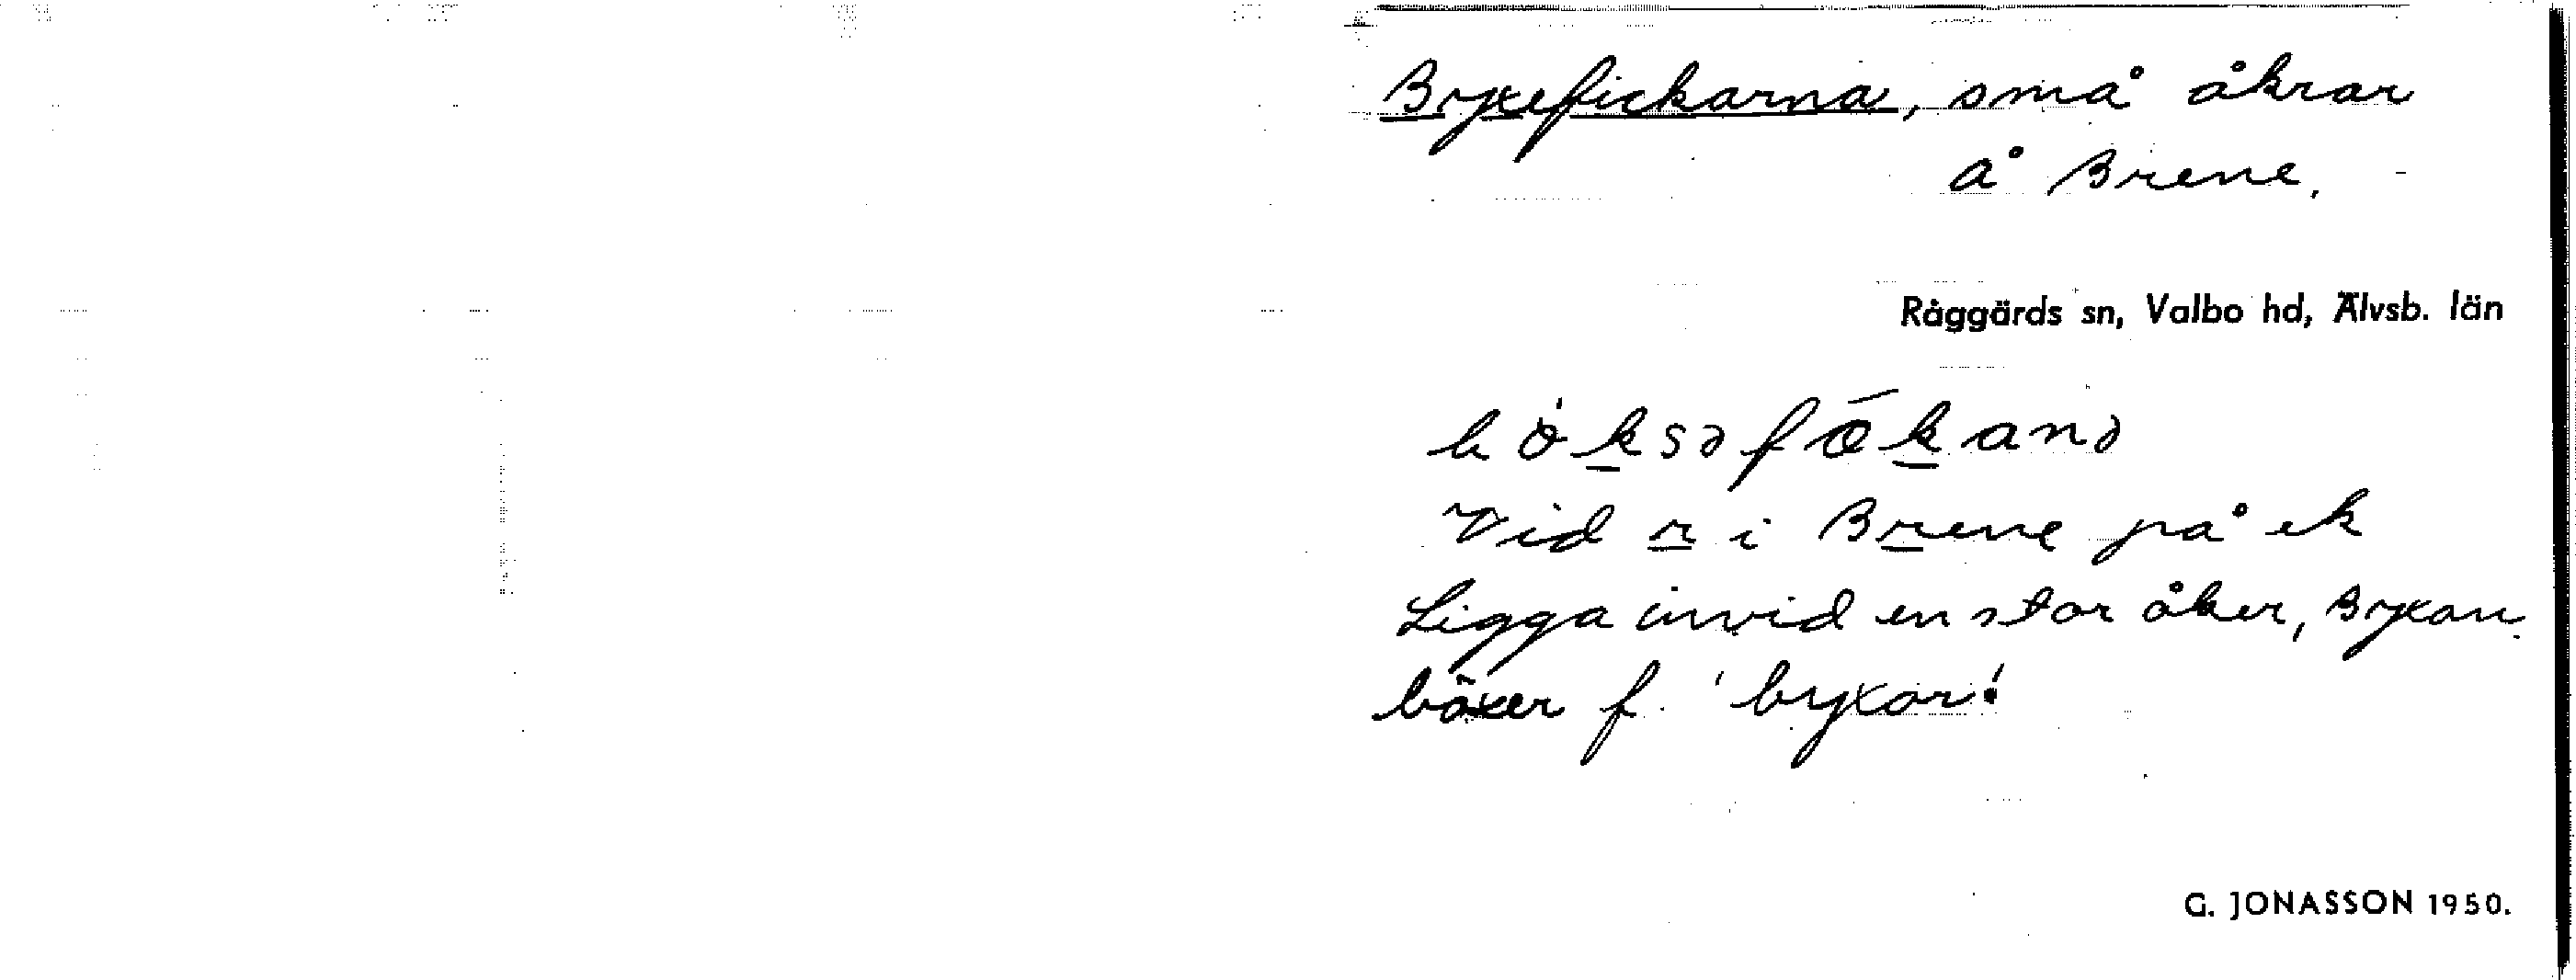 Bryxefickarna, små åkrar
å Brene.
Råggärds sn, Valbo hd, Älvsb. län
Vid r i Brene på ek
Ligga invid en stor åker, Bryxan.
böxer f. 'byxor'
G. JONASSON 1950.